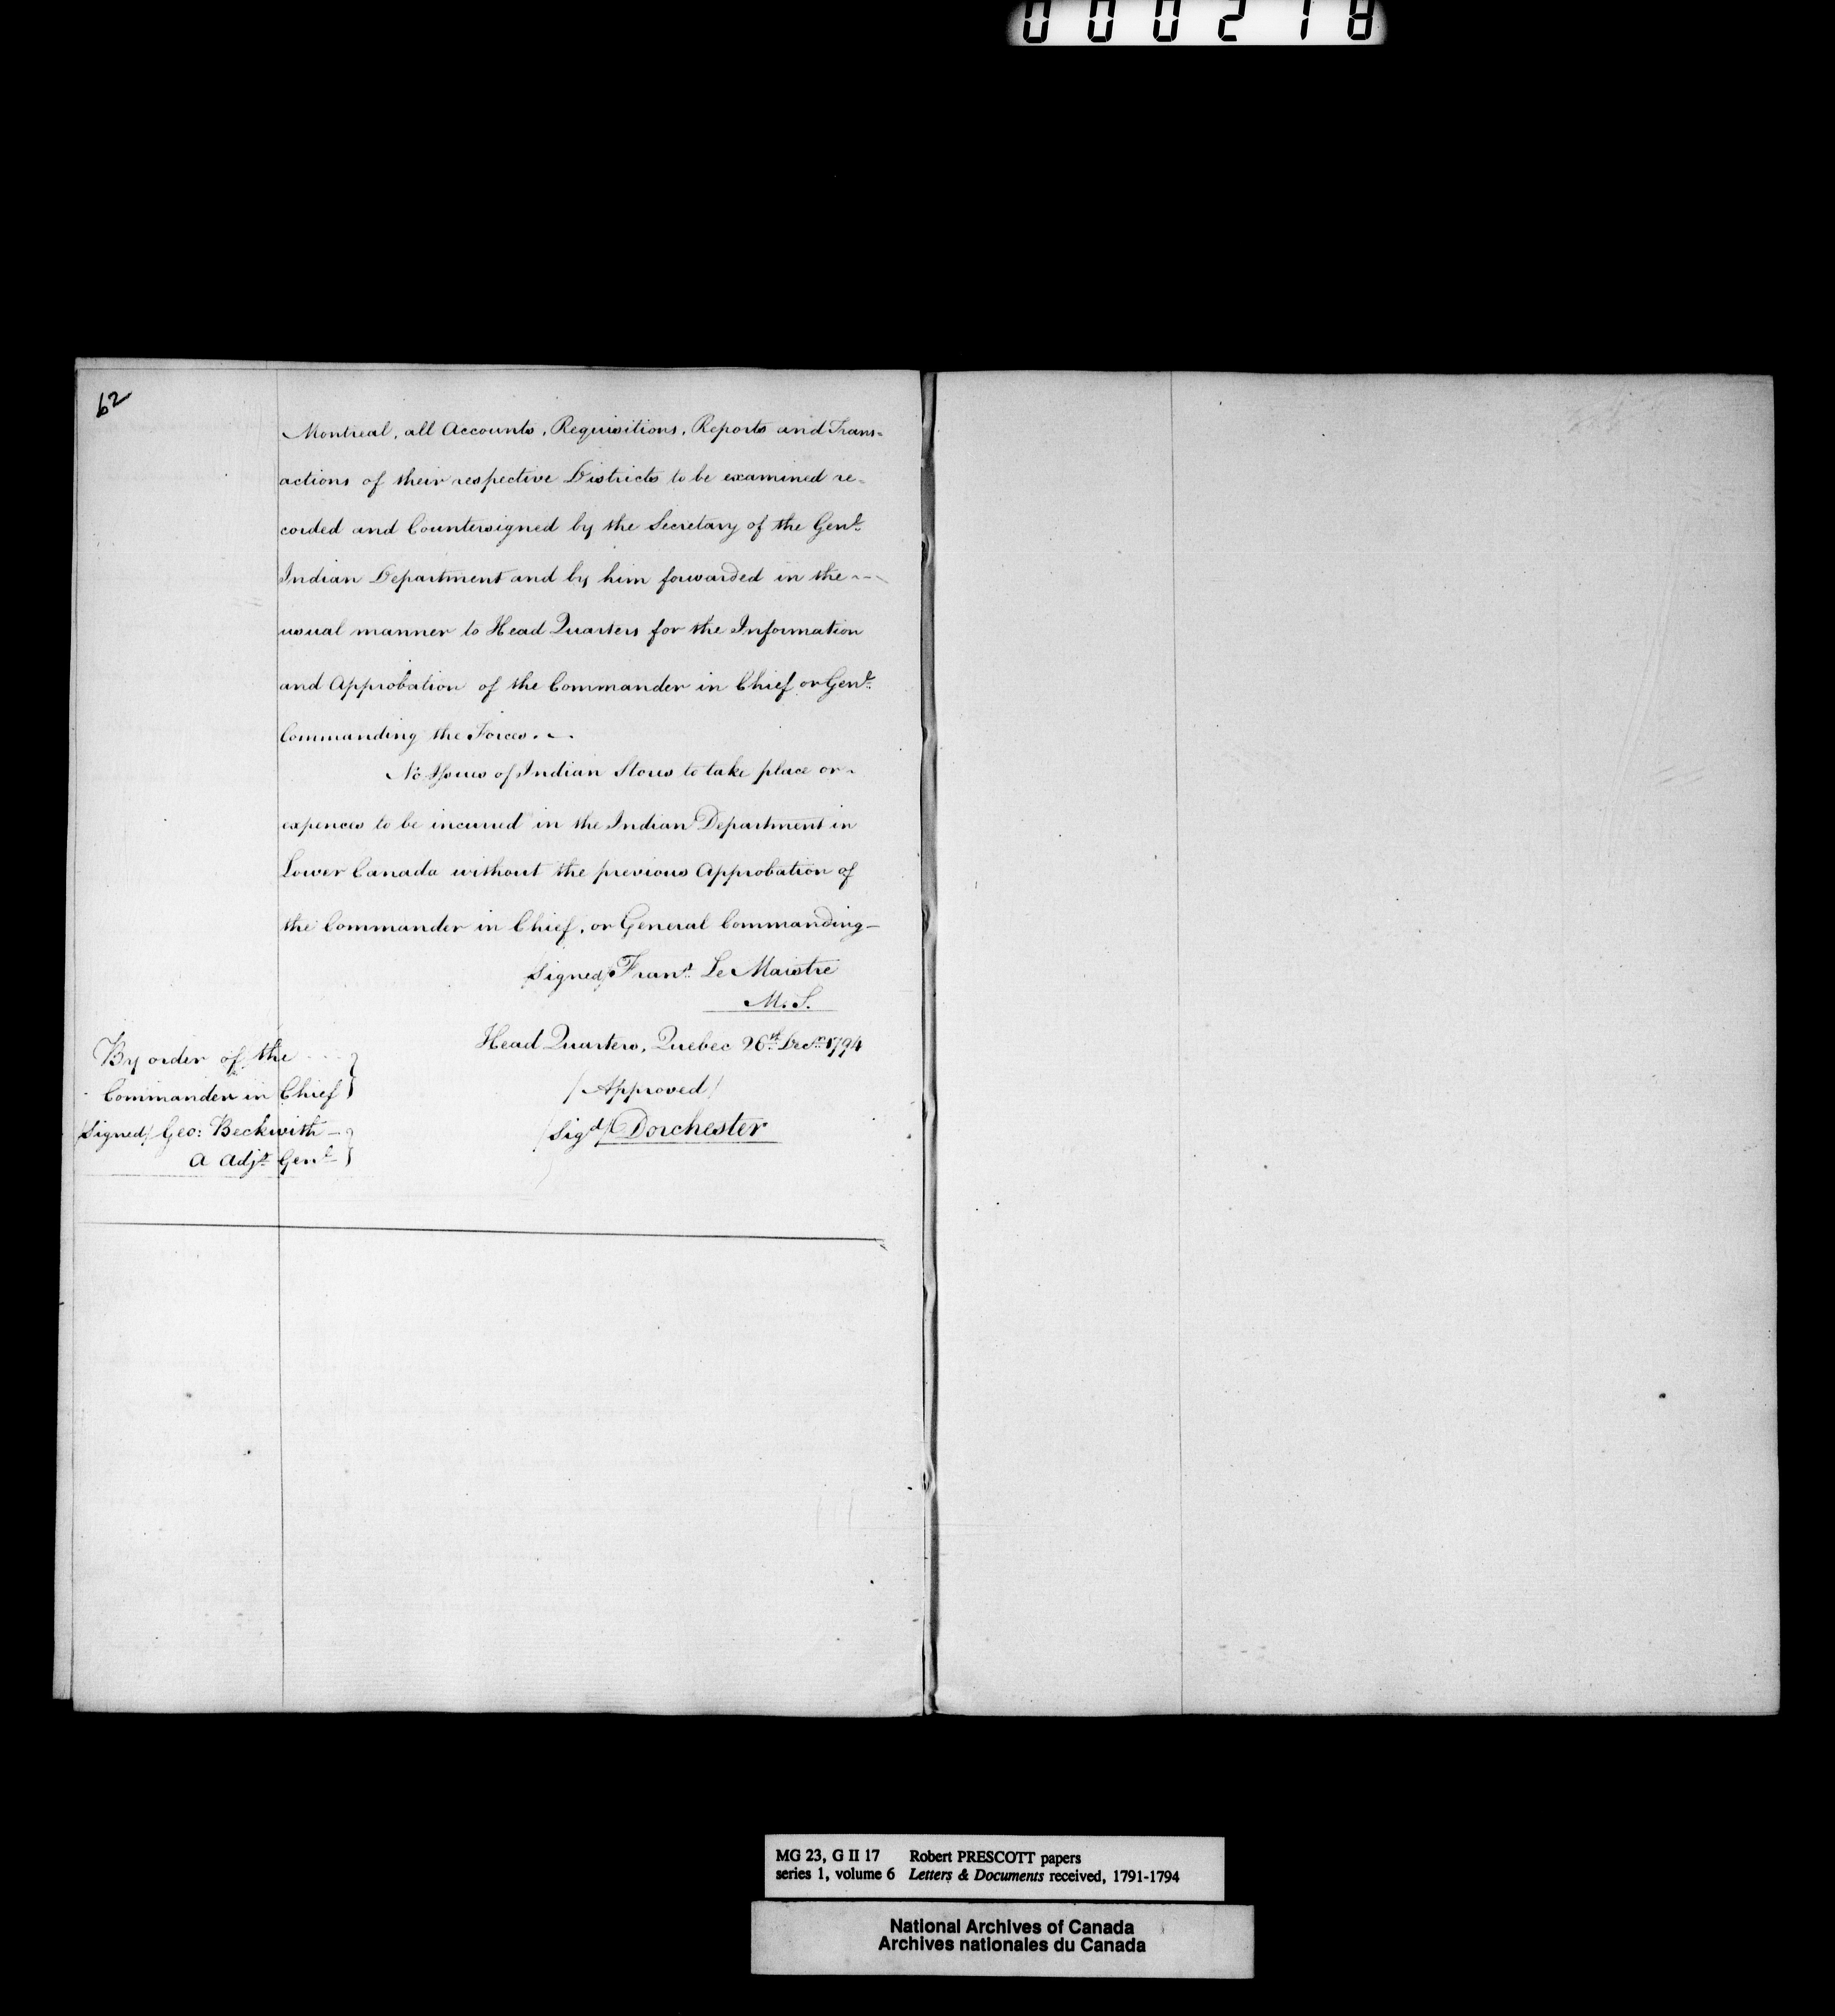 000218
62
Montreal, all Accounts, Requisitions, Reports and Trans=
actions of their respective Districts to be examined re=
corded and Countersigned by the Secretary of the Genl.
Indian Department and by him forwarded in the
usual manner to Head Quarters for the Information
and Approbation of the Commander in Chief or Genl.
Commanding the Forces.
No Issues of Indian Stores to take place or
expences to be incurred in the Indian Department in
Lower Canada without the previous Approbation of
the Commander in Chief, or General Commanding—
/Signed/ Frans. Le Maistre
M. S.
Head Quarters, Quebec 26th. Decr. 1794
/Approved/
/Sigd/ Dorchester
By order of the
Commander in Chief
/Signed/ Geo: Beckwith—
A Adjt. Genl.
MG 23, G II 17 Robert PRESCOTT papers
series 1, volume 6 Letters & Documents received, 1791-1794
National Archives of Canada
Archives nationales du Canada